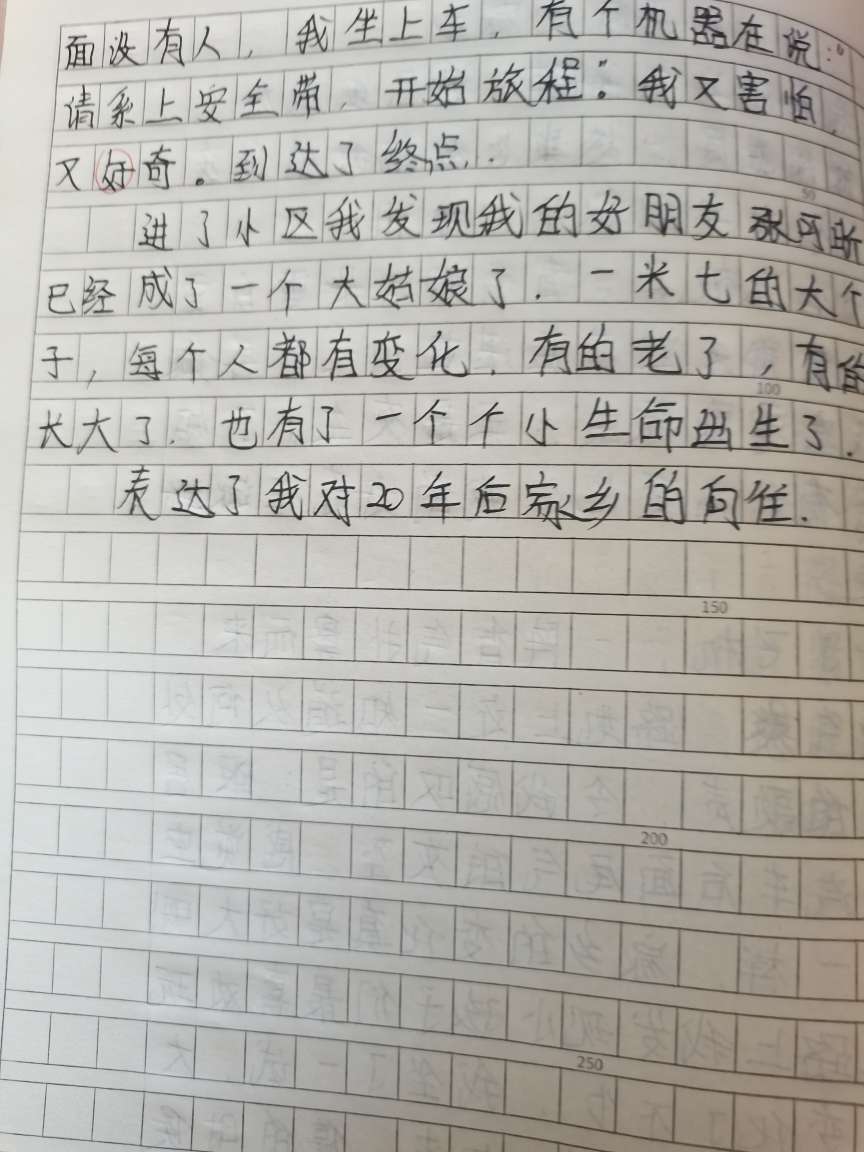 面没有人，我坐上车，有个机器在说：“
请系上安全带，开始旅程。”我又害怕，
又好奇。到达了终点.
50
进了小区我发现我的好朋友张可昕
已经成了一个大姑娘了.一米七的大个
子，每个人都有变化.有的老了，有的
100
长大了.也有了一个个小生命出生了.
表达了我对20年后家乡的向往.
150
200
250